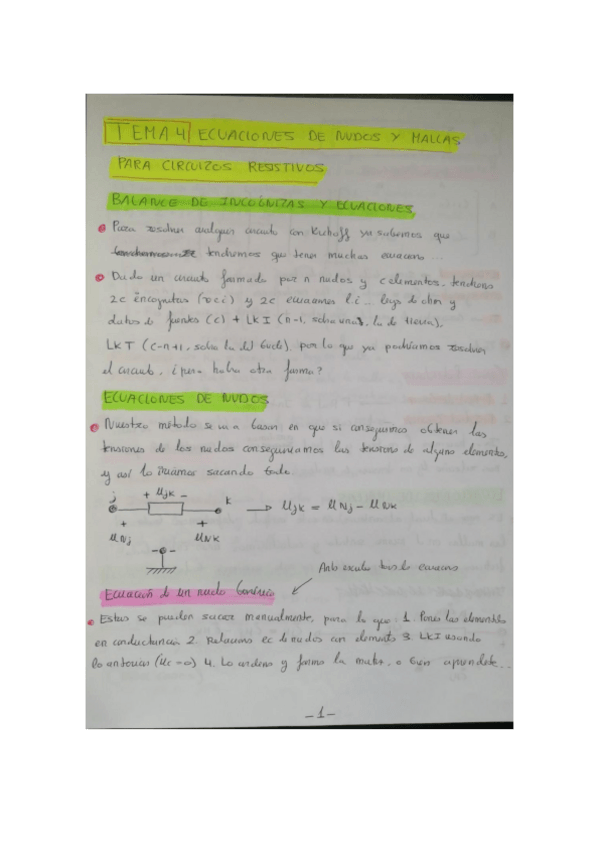 TEMA 4 ECUACIONES DE NUDOS Y MALLAS
PARA CIRCUITOS RESISTIVOS
BALANCE DE INCÓGNITAS Y ECUACIONES
Para resolver cualquier circuito con Kirhoff ya sabemos que
tendremos que tener muchas ecuaciones...
Dado un circuito formado por n nudos y c elementos, tendremos
2c incognitas y 2c ecuaciones leyes de ohm y
datos de fuentes (c) + LKI (n-1, la de tierra),
LKT (c-n+1, solo la del bucle) por lo que ya podríamos resolver
el circuito, ¿pero habrá otra forma?
ECUACIONES DE NUDOS
Nuestro método se va a basar en que si conseguimos obtener las
tensiones de los nudos conseguiríamos las tensiones de alguno elementos,
y así lo iríamos sacando todo
j + Ujk - k → Ujk = UNj - UNk
+ +
UNj UNk
-
Ecuación de un nudo Genérico
Estas se pueden sacar manualmente, para lo que: 1. Pones los elementos
en conductancia 2. Relaciono ec de nudos con elemento 3. LKI usando
lo anterior 4. Lo ordeno y formo la matriz, o bien aprendete...
-1-